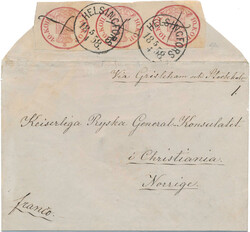 HELSINGFORS
HELSINGFORS
Via Grislehamn och Stockholm
Keiserliga Ryska General-Konsulatet
i Christiania
Norrige.
franco